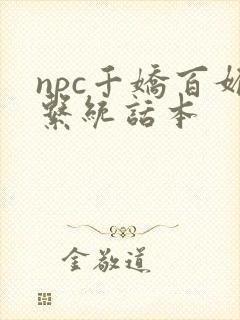 npc千嬌百媚
繫統話本
金敬道